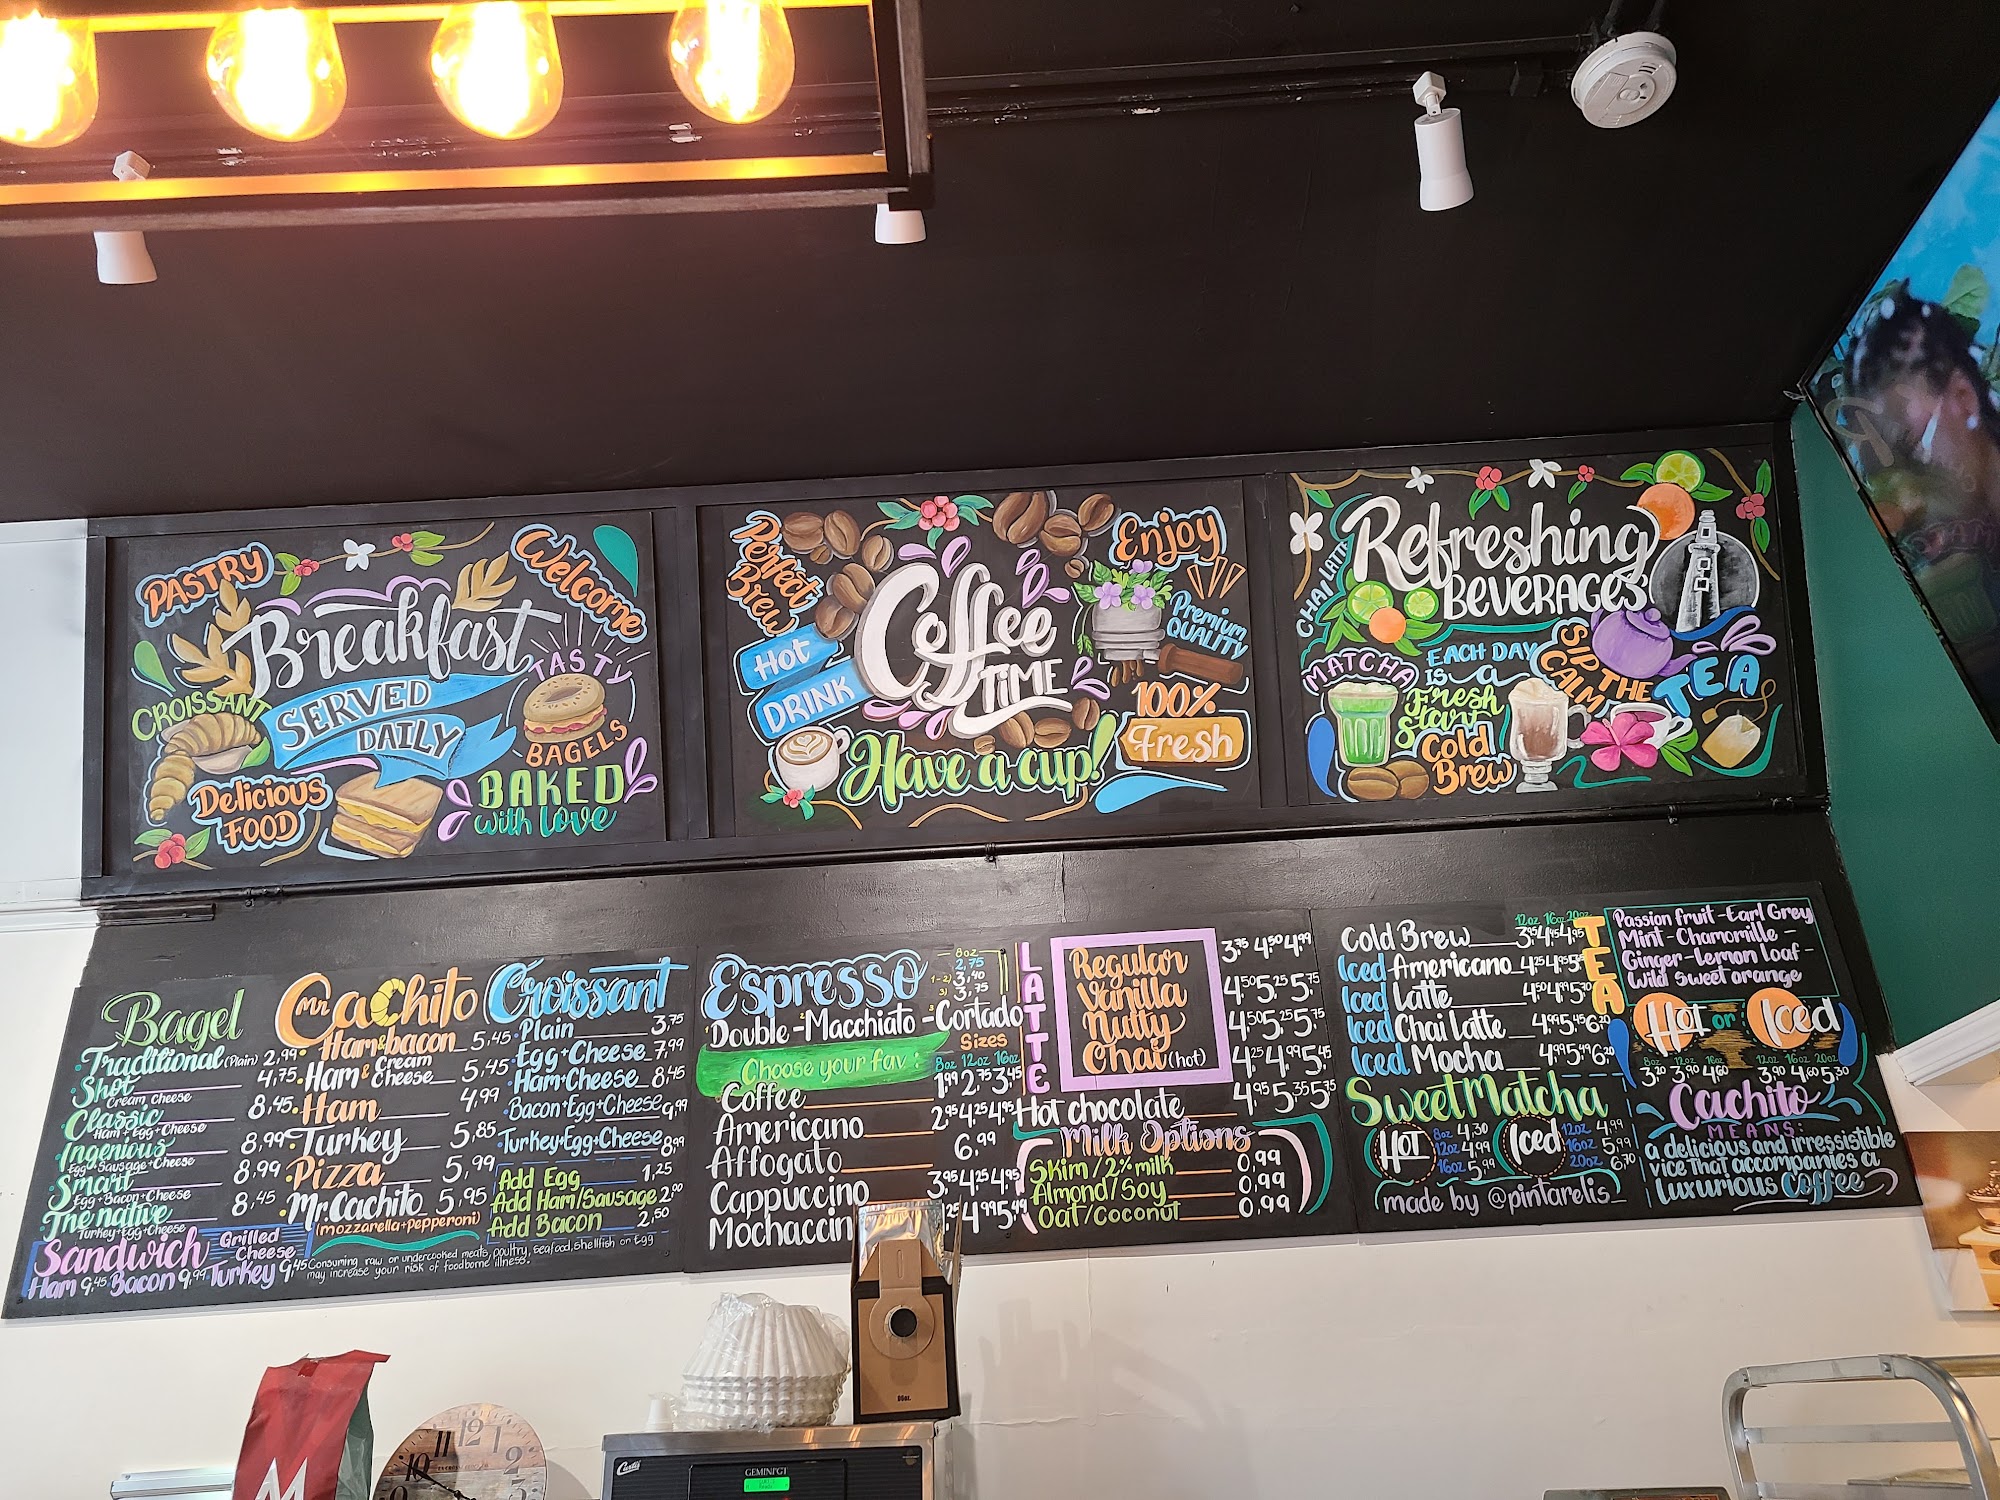 PASTRY
Welcome
Breakfast
SERVED
DAILY
CROISSANT
TASTY
BAGELS
Delicious
FOOD
BAKED
with love
Perfect
Brew
Enjoy
Hot
DRINK
Coffee
TIME
Premium
QUALITY
100%
Fresh
Have a cup!
CHAI LATTE
Refreshing
BEVERAGES
MATCHA
EACH DAY
IS a
Fresh
Start
Cold
Brew
SIP THE
CALM
TEA
Bagel
Traditional (Plain) 2,99
Shot 4,75
Cream Cheese
Classic 8,45
Ham+Egg+Cheese
Ingenious 8,99
Egg+Sausage+Cheese
Smart 8,99
Egg+Bacon+Cheese
The native 8,45
Turkey+Egg+Cheese
Sandwich
Grilled
Cheese
Ham 9,45 Bacon 9,99 Turkey 9,45
Mr Cachito
Ham&bacon 5,45
Ham & Cream Cheese 5,45
Ham 4,99
Turkey 5,85
Pizza 5,99
Mr. Cachito 5,95
(mozzarella+pepperoni)
Croissant
Plain 3,75
Egg+Cheese 7,99
Ham+Cheese 8,45
Bacon+Egg+Cheese 9,99
Turkey+Egg+Cheese 8,99
Add Egg 1,25
Add Ham/Sausage 2,00
Add Bacon 2,50
Consuming raw or undercooked meats, poultry, seafood, shellfish or Egg
may increase your risk of foodborne illness.
Espresso
8oz
2,75
1-2) 3,40
3) 3,75
1 Double - 2 Macchiato - 3 Cortado
Choose your fav:
Sizes
8oz 12oz 16oz
Coffee 1,99 2,75 3,45
Americano 2,95 4,25 4,95
Affogato 6,99
Cappuccino 3,95 4,25 4,95
Mochaccin 4,99 5,49
LATTE
Regular 3,75 4,50 4,99
Vanilla 4,50 5,25 5,75
Nutty 4,50 5,25 5,75
Chai (hot) 4,25 4,99 5,45
Hot chocolate 4,95 5,35 5,75
Milk Options
Skim / 2% milk 0,99
Almond/Soy 0,99
Oat/Coconut 0,99
12oz 16oz 20oz
Cold Brew 3,95 4,45 4,95
Iced Americano 4,25 4,95
Iced Latte 4,50 4,99 5,70
Iced Chai Latte 4,99 5,45 6,20
Iced Mocha 4,99 5,49 6,20
Sweet Matcha
HOT
8oz 4,30
12oz 4,99
16oz 5,99
Iced
12oz 4,99
16oz 5,99
20oz 6,70
made by @pintarelis_
TEA
Passion fruit - Earl Grey
Mint - Chamomille -
Ginger - Lemon loaf -
Wild sweet orange
Hot or Iced
8oz 12oz 16oz 12oz 16oz 20oz
3,20 3,90 4,60 3,90 4,60 5,30
Cachito
MEANS:
a delicious and irressistible
vice that accompanies a
luxurious Coffee
Curtis
GEMINI GT
96oz.